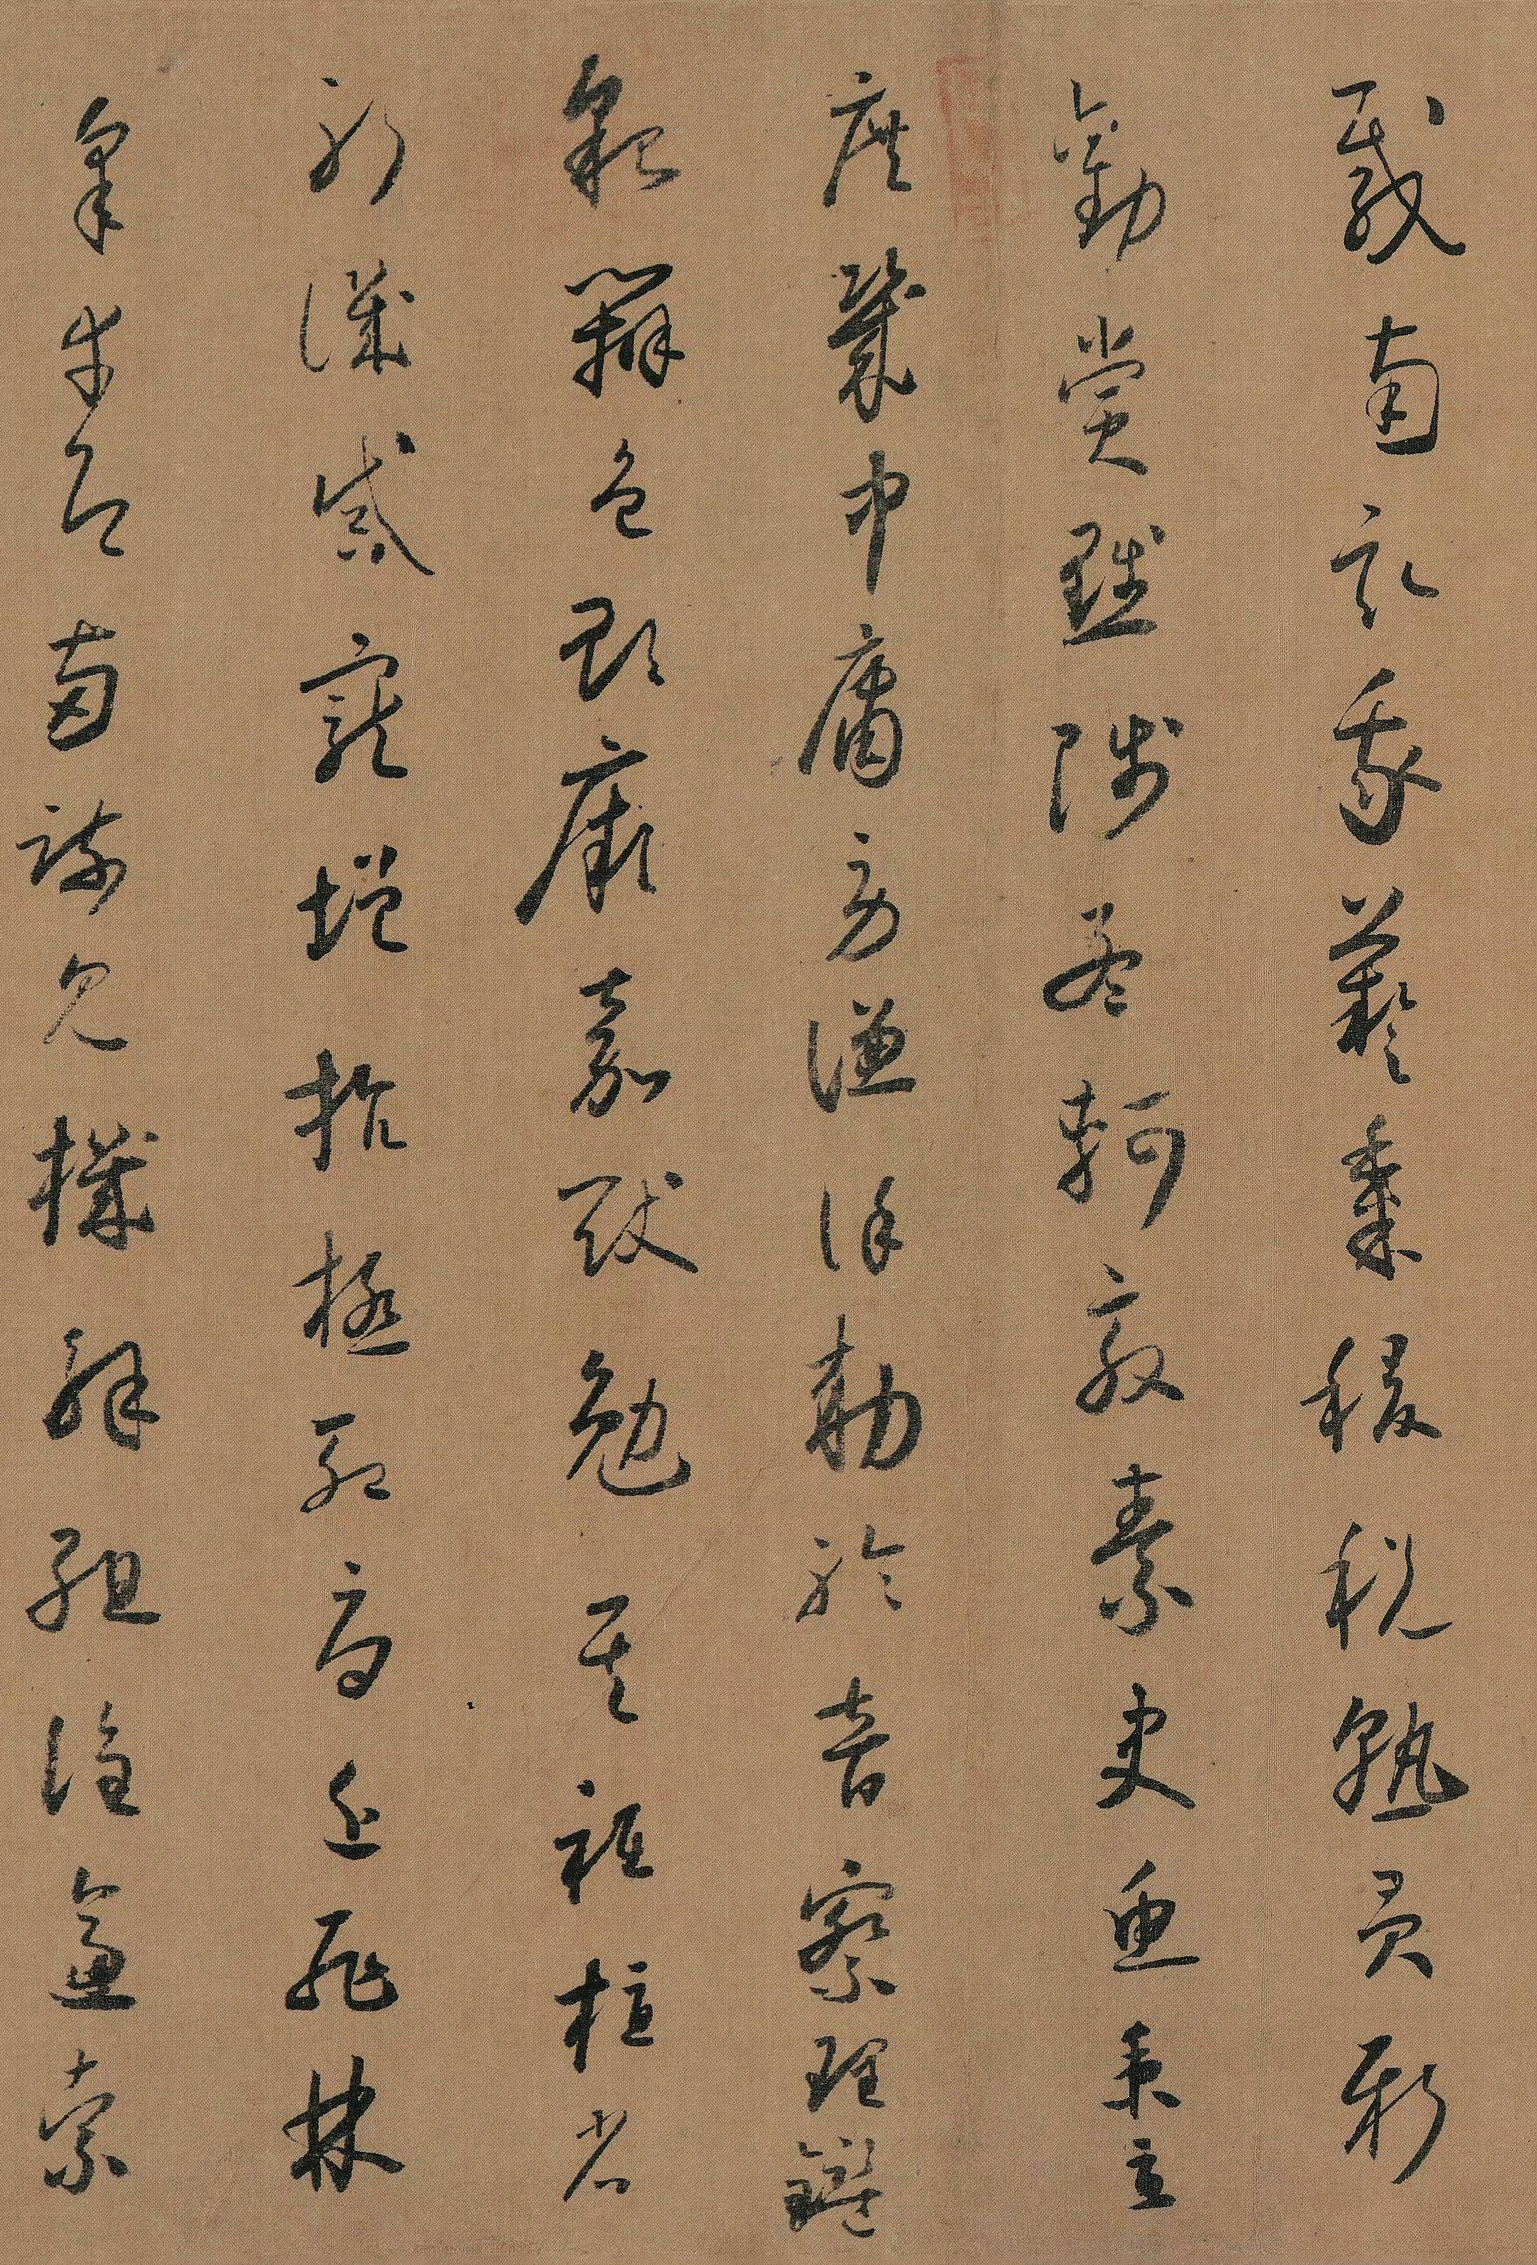 載南畝我藝黍稷稅熟貢新
勸賞黜陟孟軻敦素史魚秉直
庶幾中庸勞謙謹勅聆音察理鑑
貌辨色貽厥嘉猷勉其祗植省
躬譏誡寵增抗極殆辱近恥林
皋幸即兩疏見機解組誰逼索